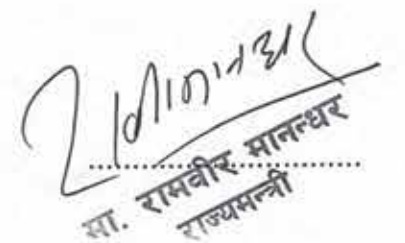 मा. रामवीर मानन्धर
राज्यमन्त्री